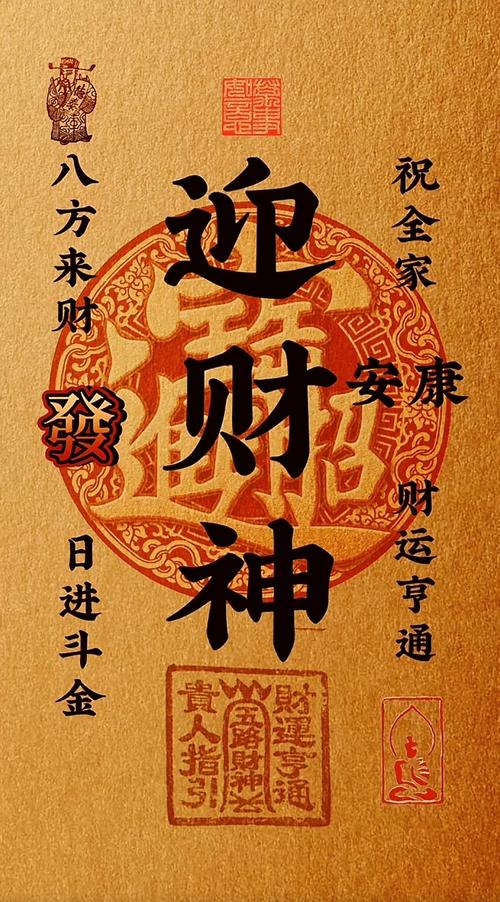 迎财神
祝全家
安康
财运亨通
八方来财
發
日进斗金
招財進寶
財運亨通
五路財神
貴人指引